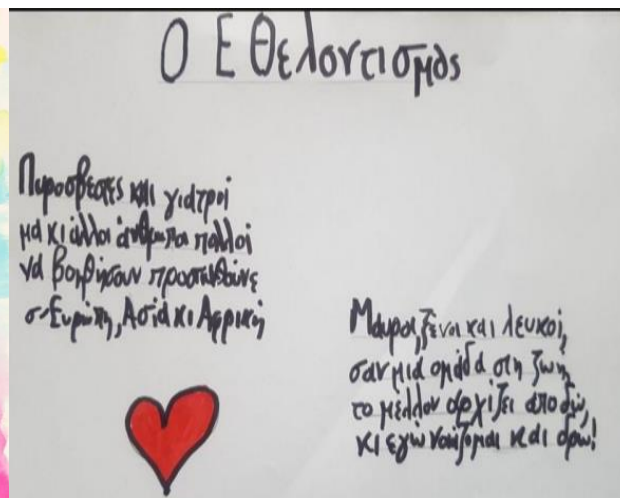 Ο Εθελοντισμός
Πυροσβέστες και γιατροί
μα κι άλλοι άνθρωποι πολλοί
να βοηθήσουν προσπαθούνε
σ' Ευρώπη, Ασία κι Αφρική
Μαύροι, ξένοι και λευκοί,
σαν μια ομάδα στη ζωή
το μέλλον αρχίζει από δω,
κι εγώ νοιάζομαι και δρω!